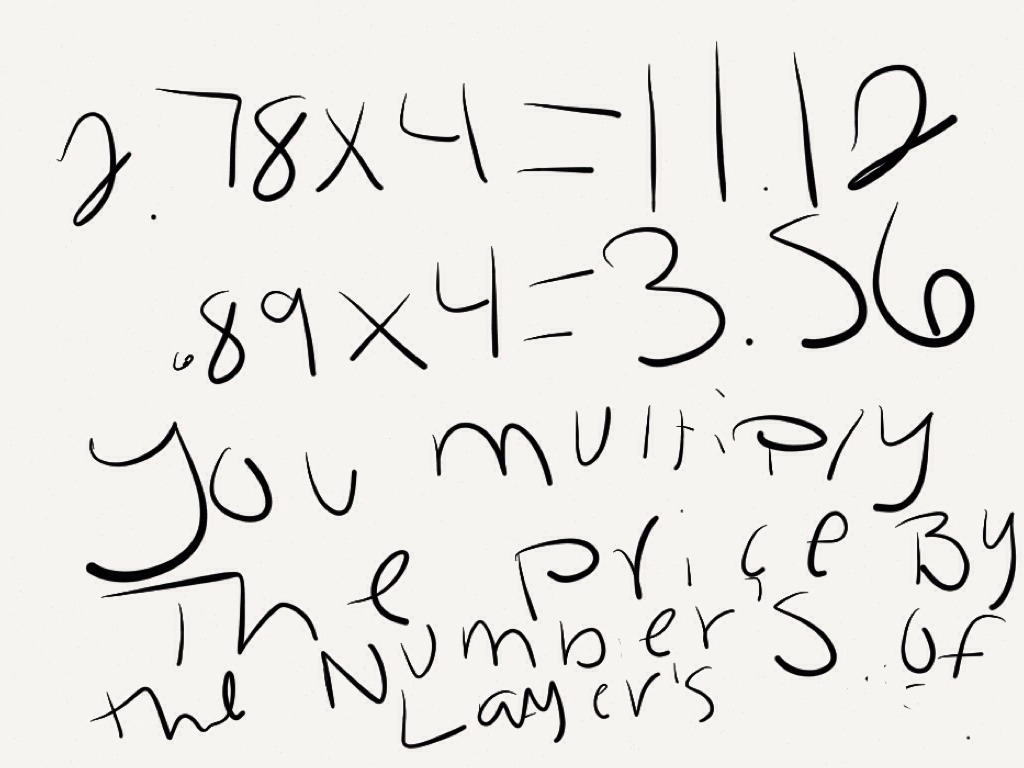 2.78x4=11.12
.89x4=3.56
you multiply
The price By
The NUmbers Of
the Layer's